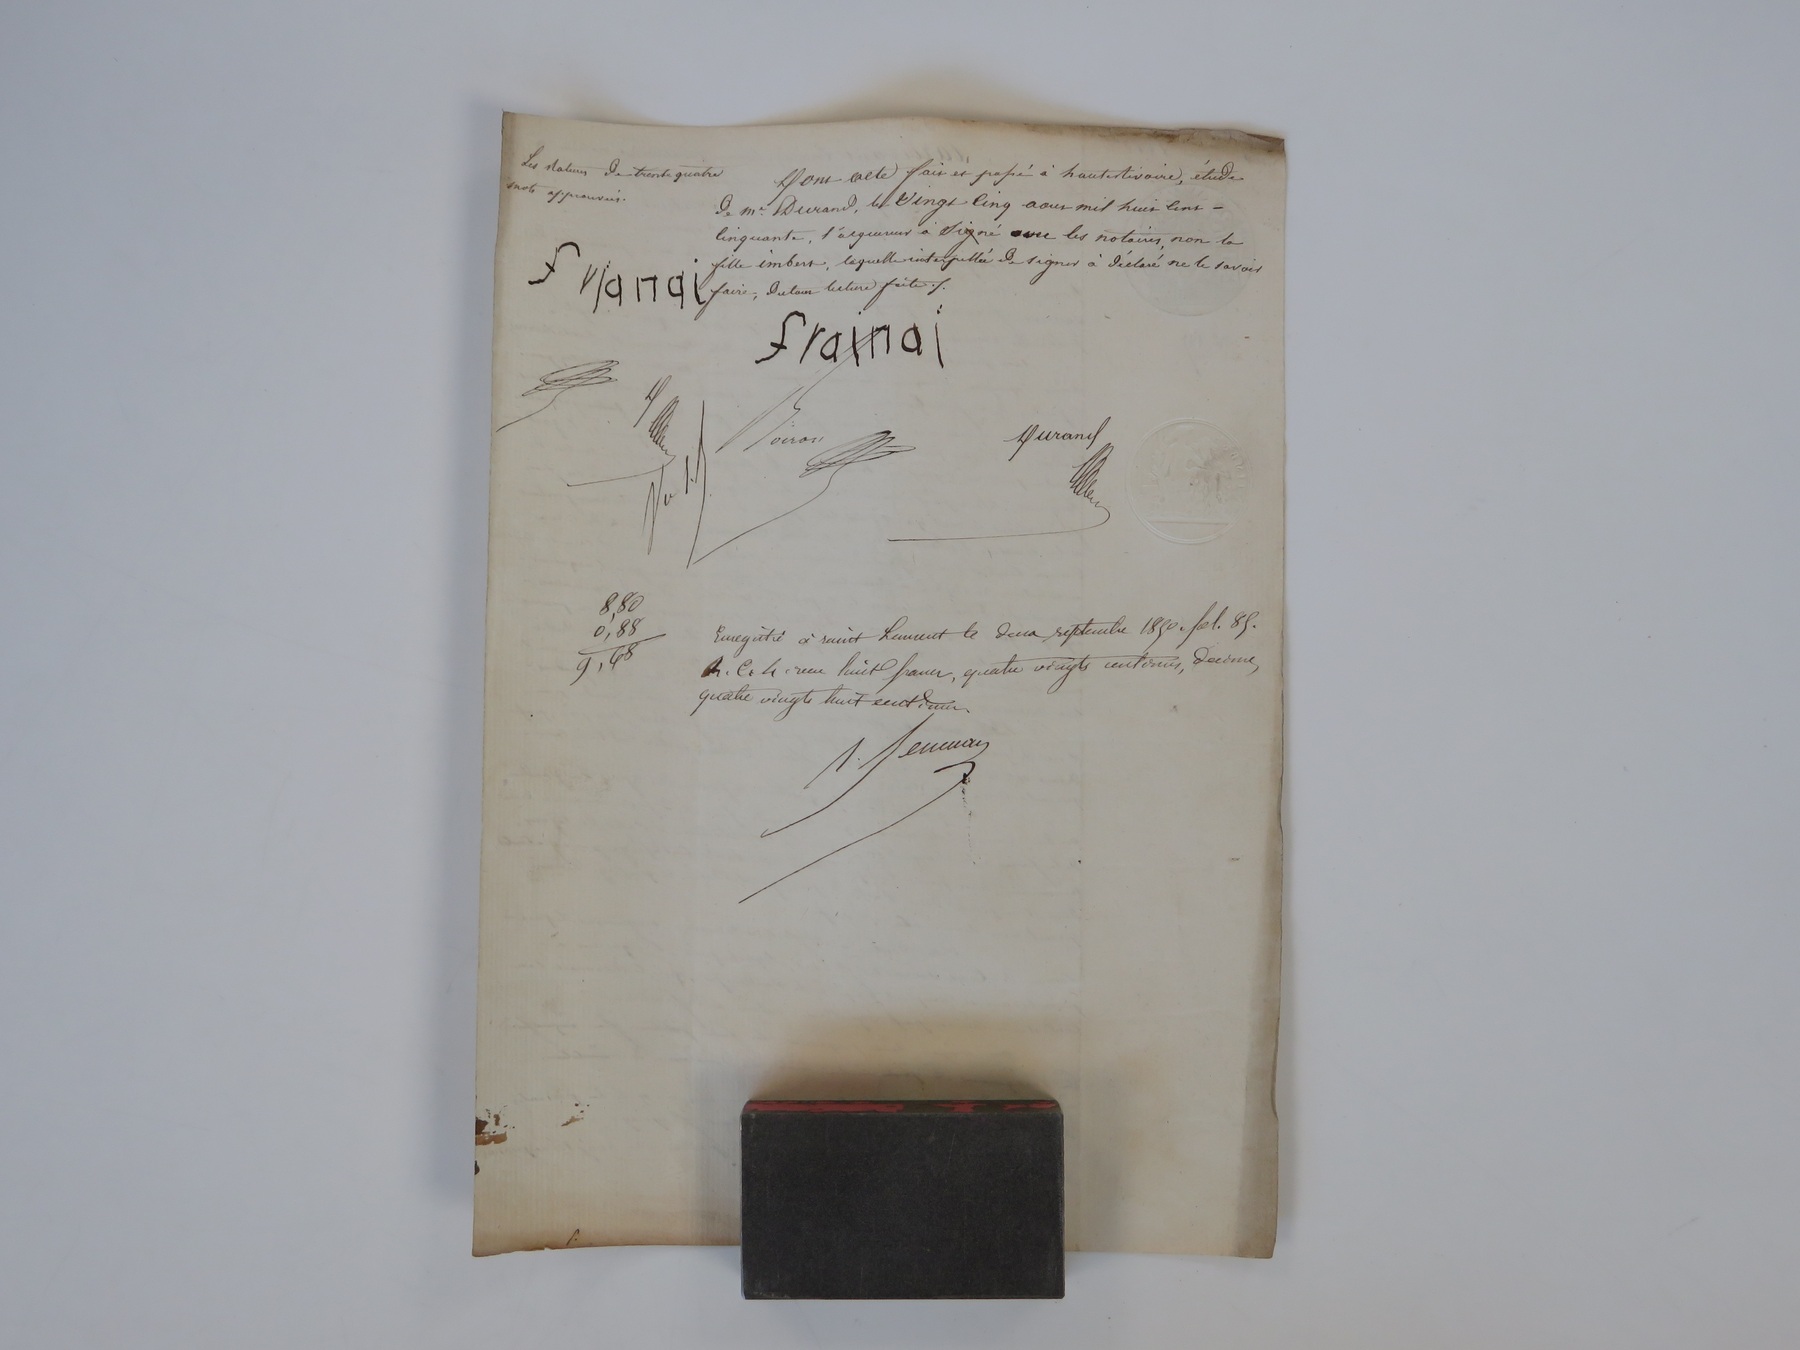 Les ratures de trente quatre
mots approuvés.
Dont acte fait et passé à hauterivoire, étude
de me. Durand, le vingt cinq aout mil huit cent
cinquante, l'acquereur à signé avec les notaires, non la
fille imbert, laquelle interpellée de signer à déclaré ne le savoir
faire, de tout lecture faite ./.
frainai
frainai
D
Boiron
Durand
8,80
0,88
9,68
Enregistré à saint Laurent le deux septembre 1850. fol. 85.
R. C. 4. reçu huit francs, quatre vingts centimes, décime,
quatre vingts huit centimes.